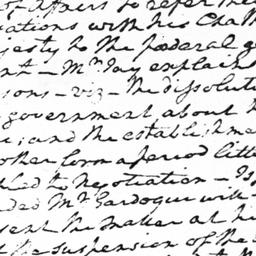 of Affairs to refer the
ations with his Cath
jesty to the foederal g
nt — Mr Jay explain
sons — viz — the dissolut
government about t
e; and the establishme
other form a period littl
ted to Negotiation — I
ded Mr Gardoqui will
sent the matter at hi
the suspension of the